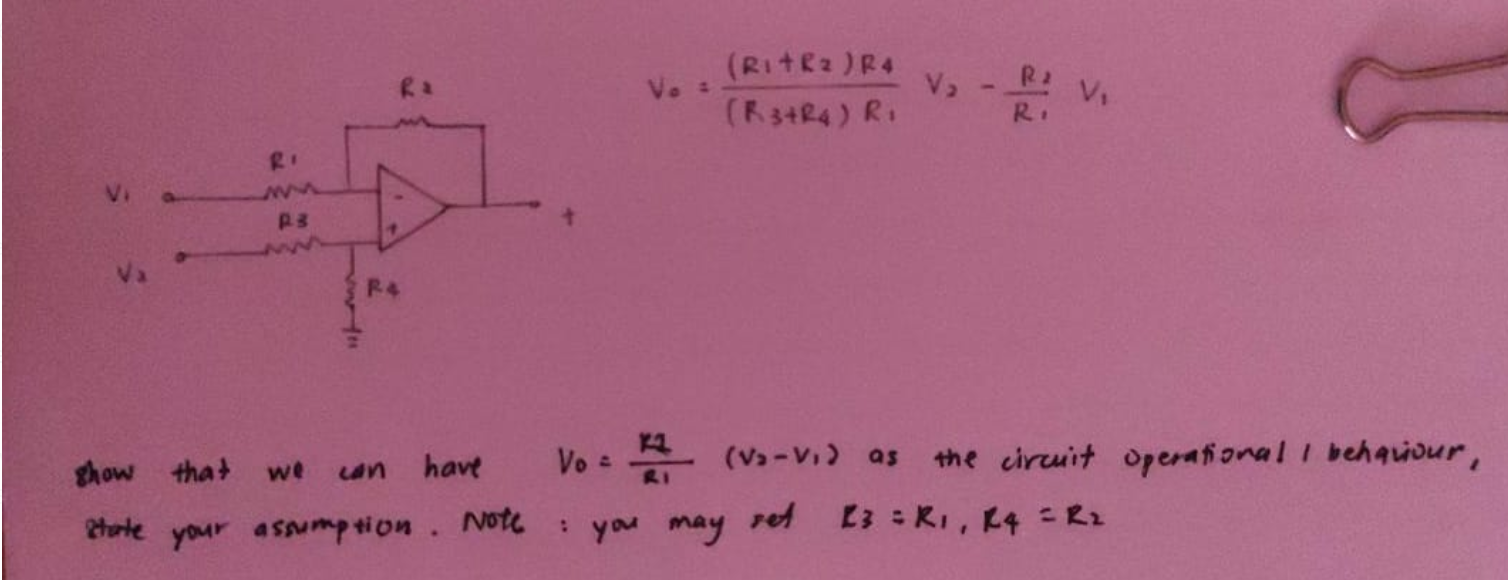 R2
Vo = (R1+R2)R4 / (R3+R4) R1 V2 - R2 / R1 V1
R1
V1
-
R3
+
+
V2
R4
show that we can have Vo = R2 / R1 (V2-V1) as the circuit operational / behaviour,
state your assumption. Note : you may set R3 = R1, R4 = R2